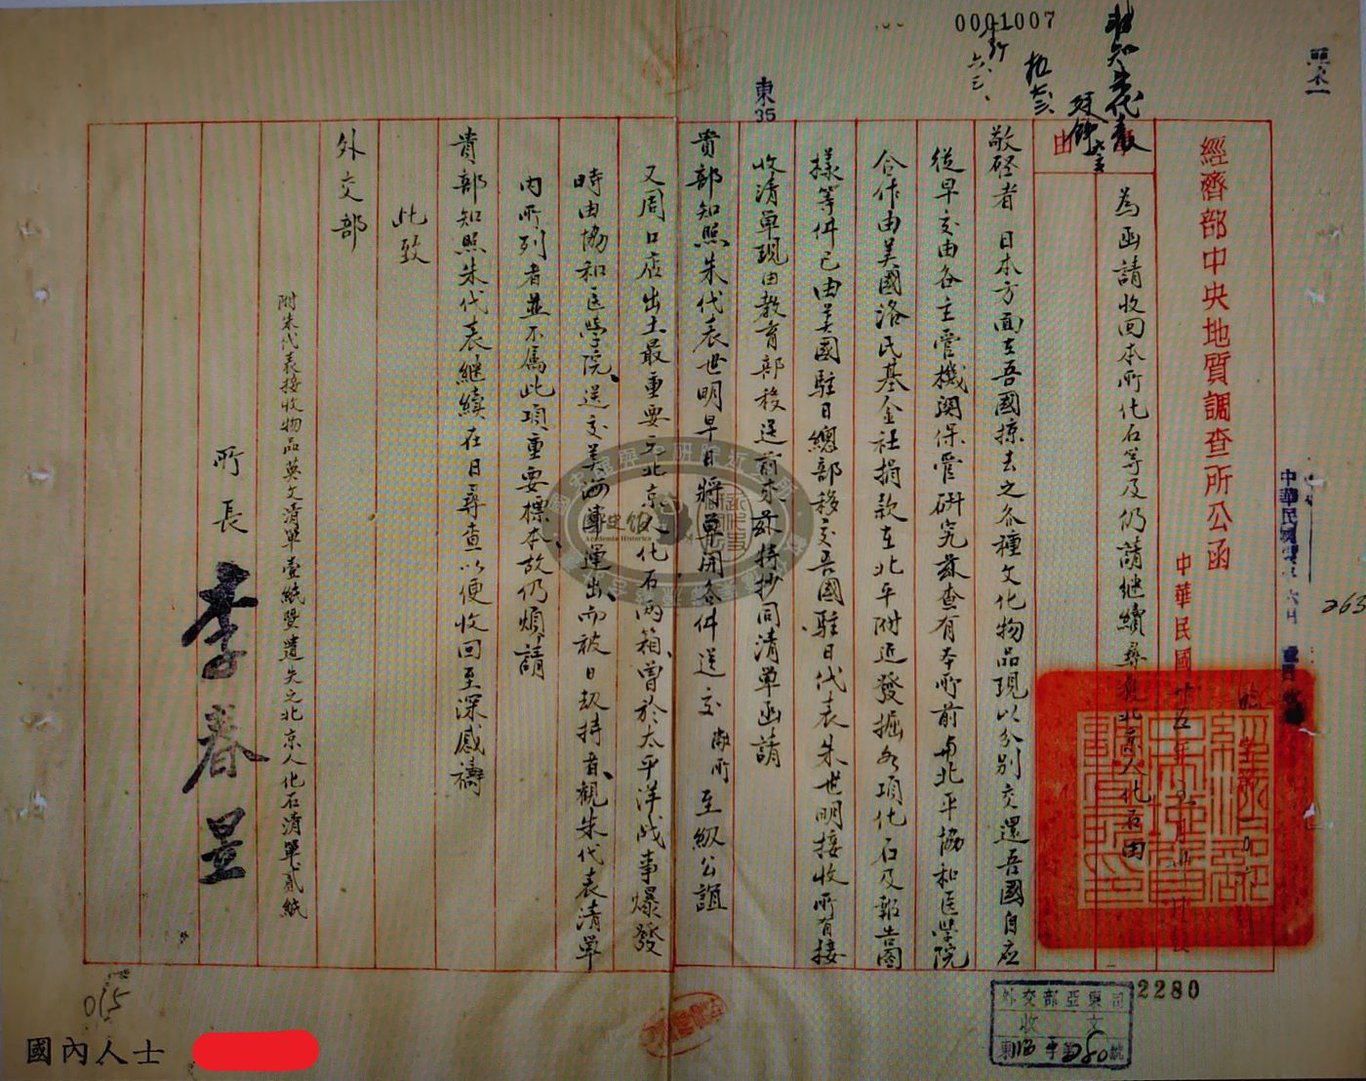 0001007
東
35
經濟部中央地質調查所公函
中華民國廿五年
為函請收回本所化石等及仍請繼續尋查北京人化石由
敬啓者 日本方面在吾國掠去之各種文化物品現以分別交還吾國自应
從早交由各主管機関保管研究茲查有本所前與北平協和医學院
合作由美國洛氏基金社捐款在北平附近發掘各項化石及報告圖
樣等件已由美國駐日總部移交吾國駐日代表朱世明接收所有接
收清單現由教育部移送前來茲特抄同清單函請
貴部知照朱代表世明早日將單開各件送交敝所至級公誼
又周口店出土最重要之北京人化石兩箱曾於太平洋战事爆發
時由協和医學院送交美海軍運出而被日劫持者觀朱代表清單
內所列者並不屬此項重要標本故仍煩請
貴部知照朱代表繼續在日尋查以便收回至深感禱
此致
外交部
附朱代表接收物品英文清單壹紙暨遺失之北京人化石清單貳紙
所長 李春昱
263
2280
外交部亞東司
收文
Academia Historica
國內人士